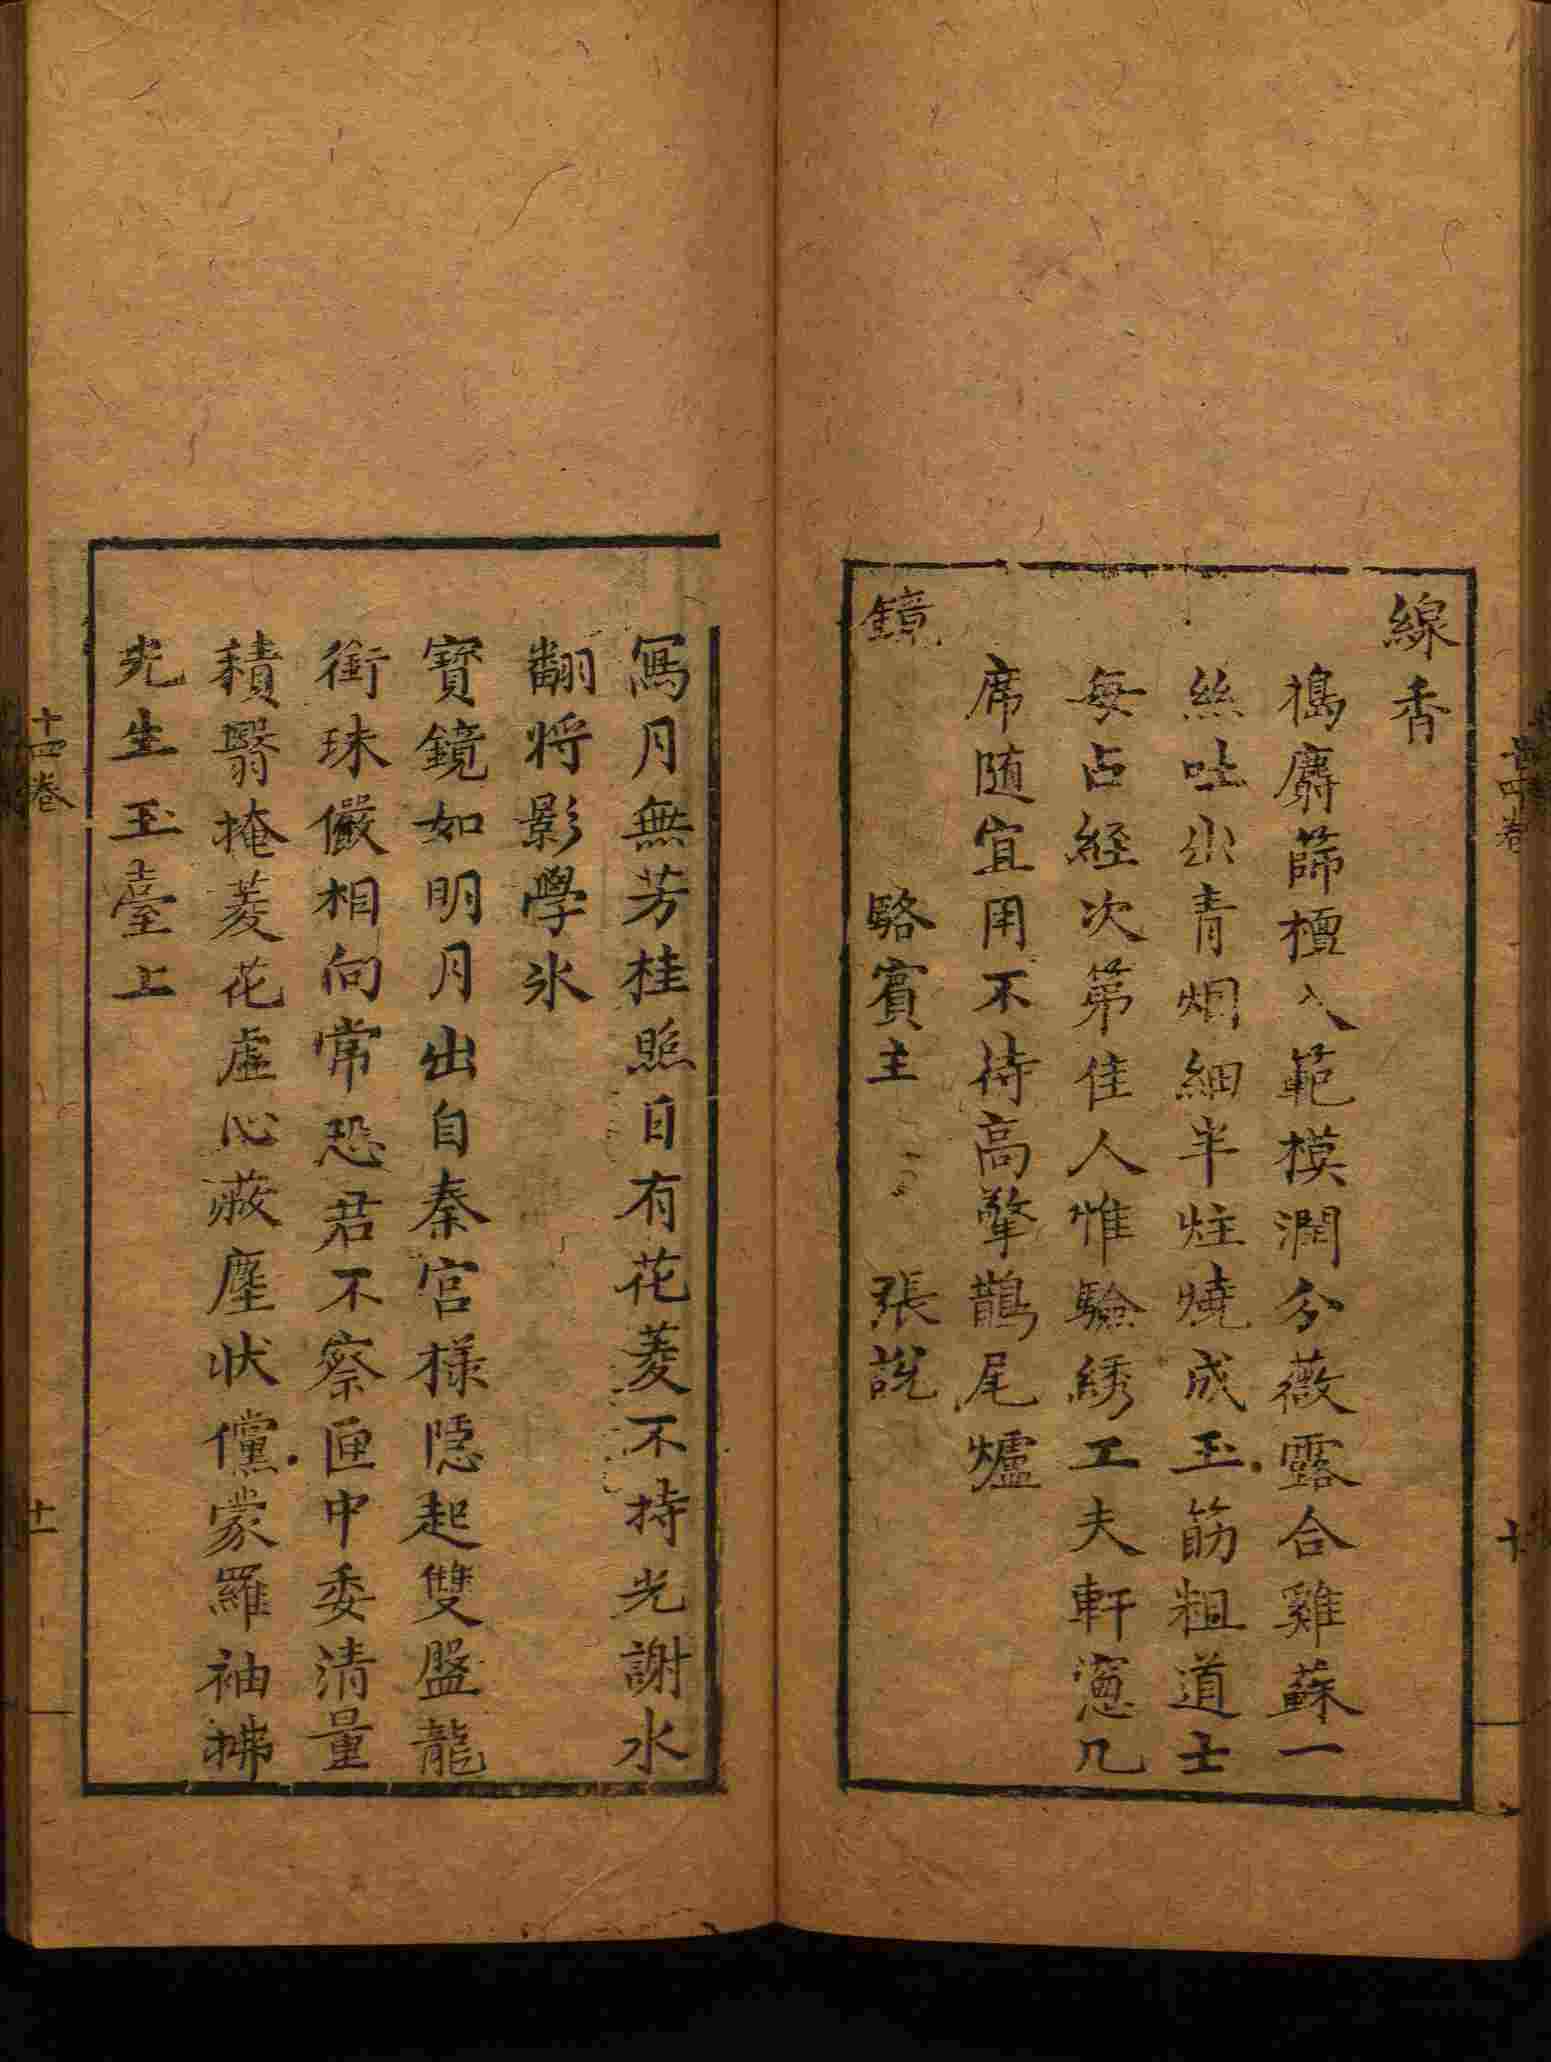 線香
搗麝篩檀入範模潤分薇露合雞蘇一
絲吐出青烟細半炷燒成玉筋粗道士
每占經次第佳人惟驗綉工夫軒窻几
席随宜用不待高擎鵲尾爐
鏡 駱賓主 張說
十四卷
十
寫月無芳桂照日有花菱不持光謝水
翻将影學氷
寳鏡如明月出自秦宫樣隠起雙盤龍
銜珠儼相向常恐君不察匣中委清量
積翳掩菱花虚心蔽塵状儻蒙羅袖拂
光生玉臺上
十四卷
十一